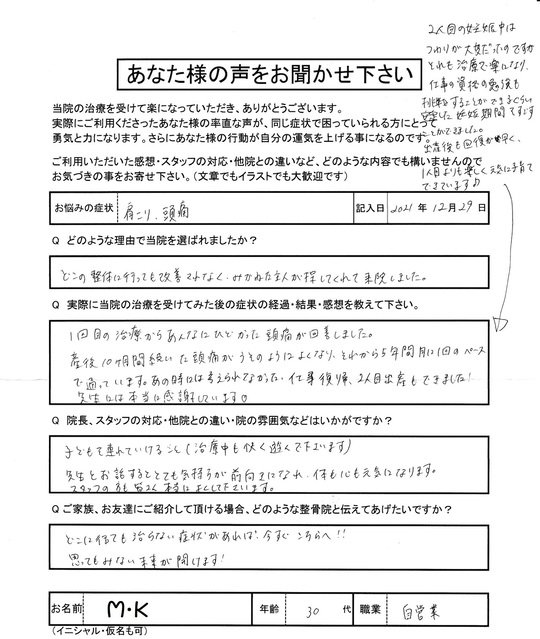 あなた様の声をお聞かせ下さい
2人目の妊娠中は
つわりが大変だったのですが
それも治療で楽になり、
仕事の資格の勉強も
妊娠期間
すごす
ことができました。
出産後も回復が早く、
1人目よりも楽しく元気に子育て
できています♪
当院の治療を受けて楽になっていただき、ありがとうございます。
実際にご利用くださったあなた様の率直な声が、同じ症状で困っていられる方にとって
勇気と力になります。さらにあなた様の行動が自分の運気を上げる事になるのです。
ご利用いただいた感想・スタッフの対応・他院との違いなど、どのような内容でも構いませんので
お気づきの事をお寄せ下さい。(文章でもイラストでも大歓迎です)
お悩みの症状 肩こり、頭痛 記入日 2021年12月29日
Q どのような理由で当院を選ばれましたか?
どこの整体に行っても改善されなく、みかねた主人が探してくれて来院しました。
Q 実際に当院の治療を受けてみた後の症状の経過・結果・感想を教えて下さい。
1回目の治療からあんなにひどかった頭痛が改善しました。
産後10ヶ月間続いた頭痛がうそのようによくなり、それから5年間月に1回のペース
で通っています。あの時には考えられなかった、仕事復帰、2人目出産もできました!
先生には本当に感謝しています
Q 院長、スタッフの対応・他院との違い・院の雰囲気などはいかがですか?
子どもも連れていけること(治療中も快く遊んで下さいます)
先生とお話するととても気持ちが前向きになれ、体も心も元気になります。
スタッフの方も皆さん本当によくして下さいます。
Q ご家族、お友達にご紹介して頂ける場合、どのような整骨院と伝えてあげたいですか?
どこに行っても治らない症状があれば、今すぐこちらへ!!
思ってもみない未来が開けます!
お名前 M・K 年齢 30 代 職業 自営業
(イニシャル・仮名も可)